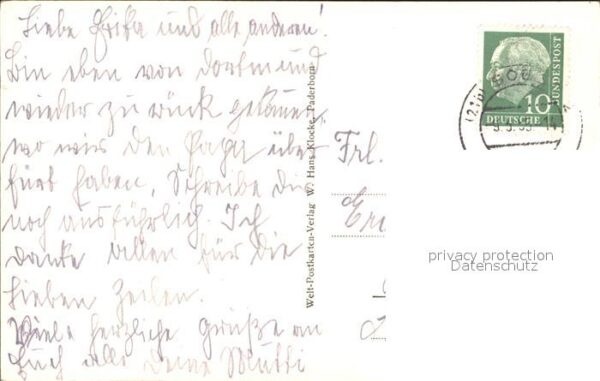 Liebe Erika und alle anderen!
Bin eben von Dortmund
wieder zu rück gekommen,
wo wir den Papa über
führt haben, Schreibe dir
noch ausführlich. Ich
danke allen für die
lieben Zeilen.
Viele herzliche Grüße an
Euch alle Deine Mutti
Welt-Postkarten-Verlag W. Hans Klocke, Paderborn
Frl.
DEUTSCHE
BUNDESPOST
10
privacy protection
Datenschutz